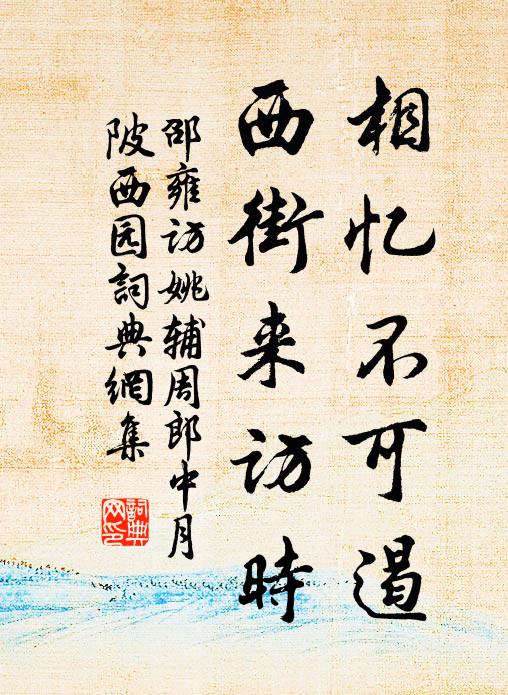 相忆不可遏
西街来访時
邵雍访姚辅周郎中月
陂西园詞典網集
詞典
网印